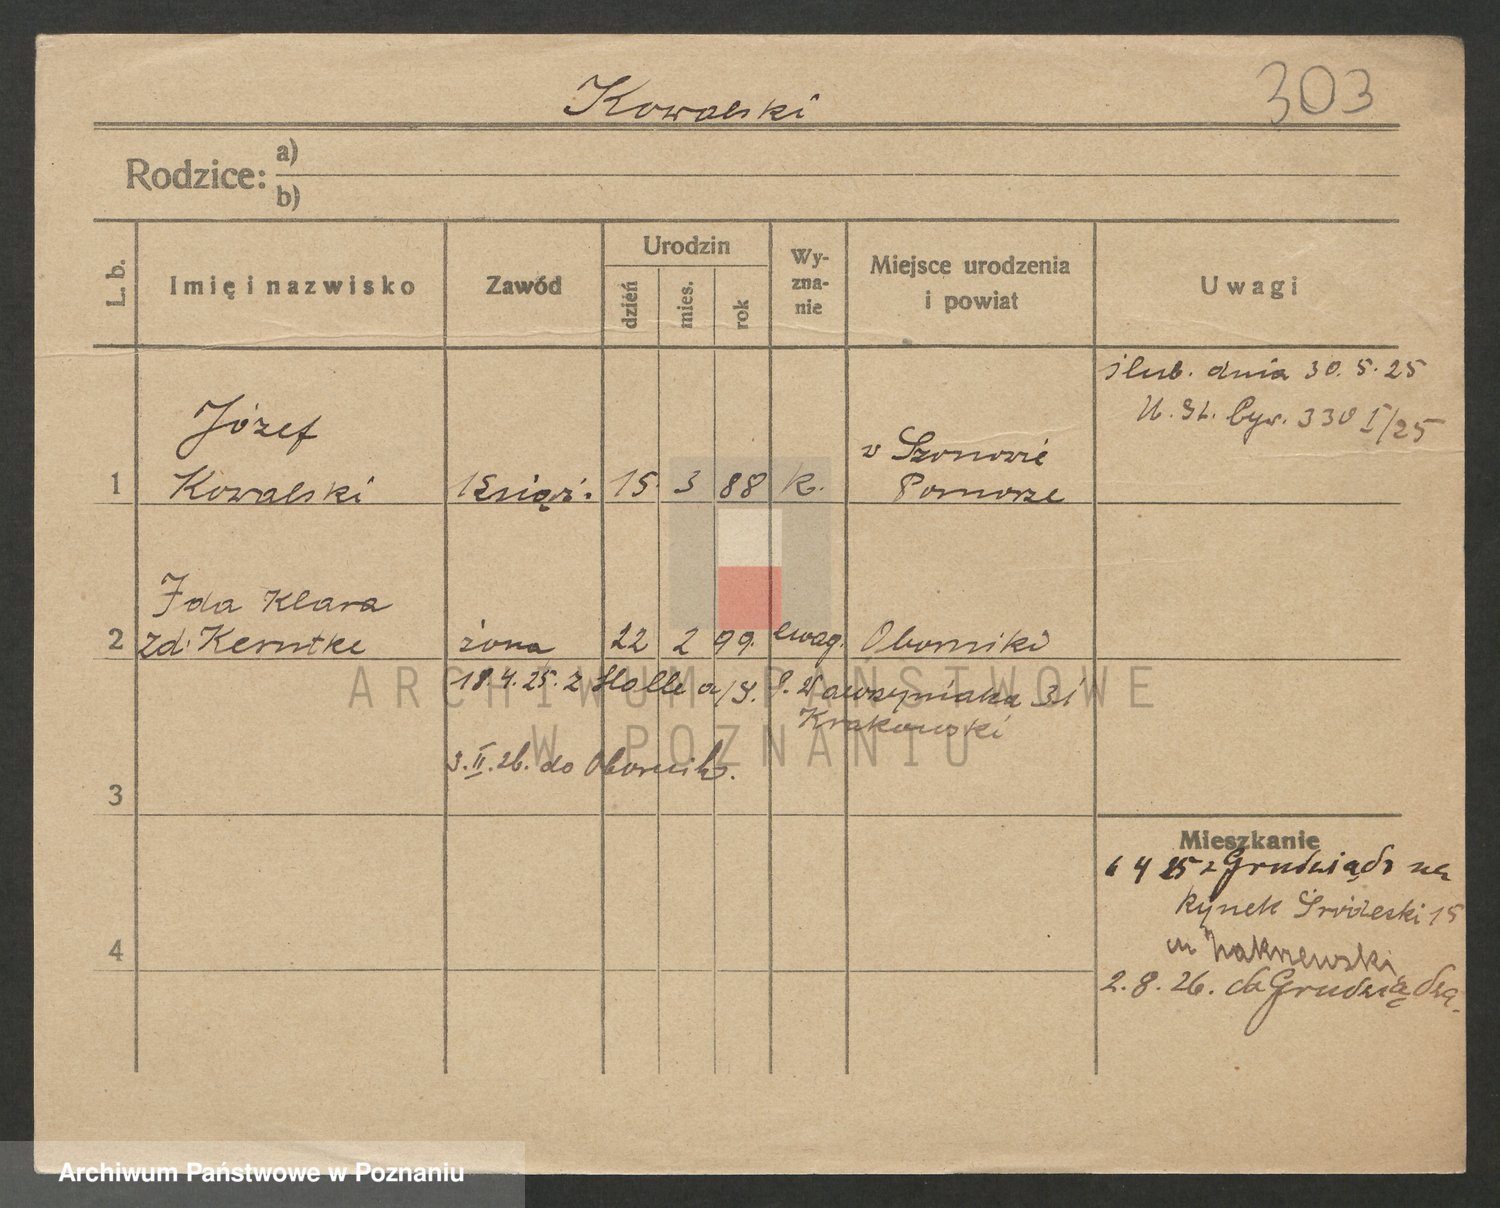 Kowalski
303
Rodzice:
a)
b)
L. b.
Imię i nazwisko
Zawód
Urodzin
dzień
mies.
rok
Wy-
zna-
nie
Miejsce urodzenia
i powiat
Uwagi
ślub. dnia 30. 5. 25
U. St. Byw. 330 I/25
Józef
w Szonowie
1 Kowalski Księż. 15 3 88 k. Pomorze
Ida Klara
2 zd. Kerntke żona 22 2 99. ewag. Oborniki
18.4.25. z Halle a/S. P. Wawrzyniaka 31
Krakowski
3. II. 26. do Obornik.
3
Mieszkanie
6 4 25 z Grudziądz na
Rynek Śródeski 15
m
4
2. 8. 26. do Grudziądza.
ARCHIWUM PAŃSTWOWE
W POZNANIU
Archiwum Państwowe w Poznaniu